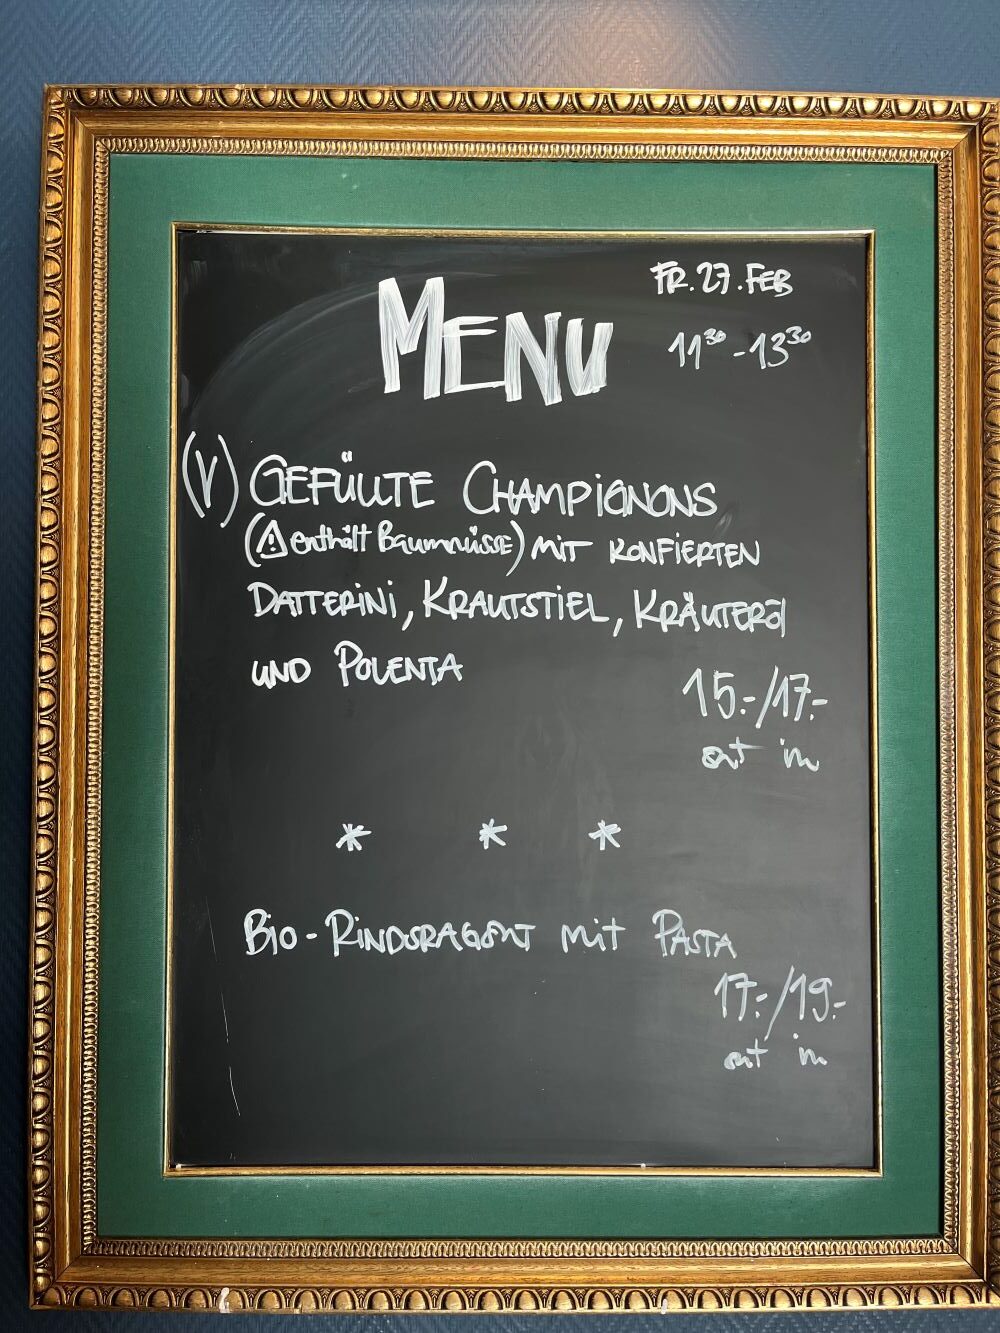 MENU
FR. 27. FEB
11³⁰ - 13³⁰
(V) GEFÜLLTE CHAMPIGNONS
(⚠ enthält Baumnüsse) MIT KONFIERTEN
DATTERINI, KRAUTSTIEL, KRÄUTERÖL
UND POLENTA
15.-/17.-
out in
* * *
BIO - RINDSRAGOUT MIT PASTA
17.-/19.-
out in